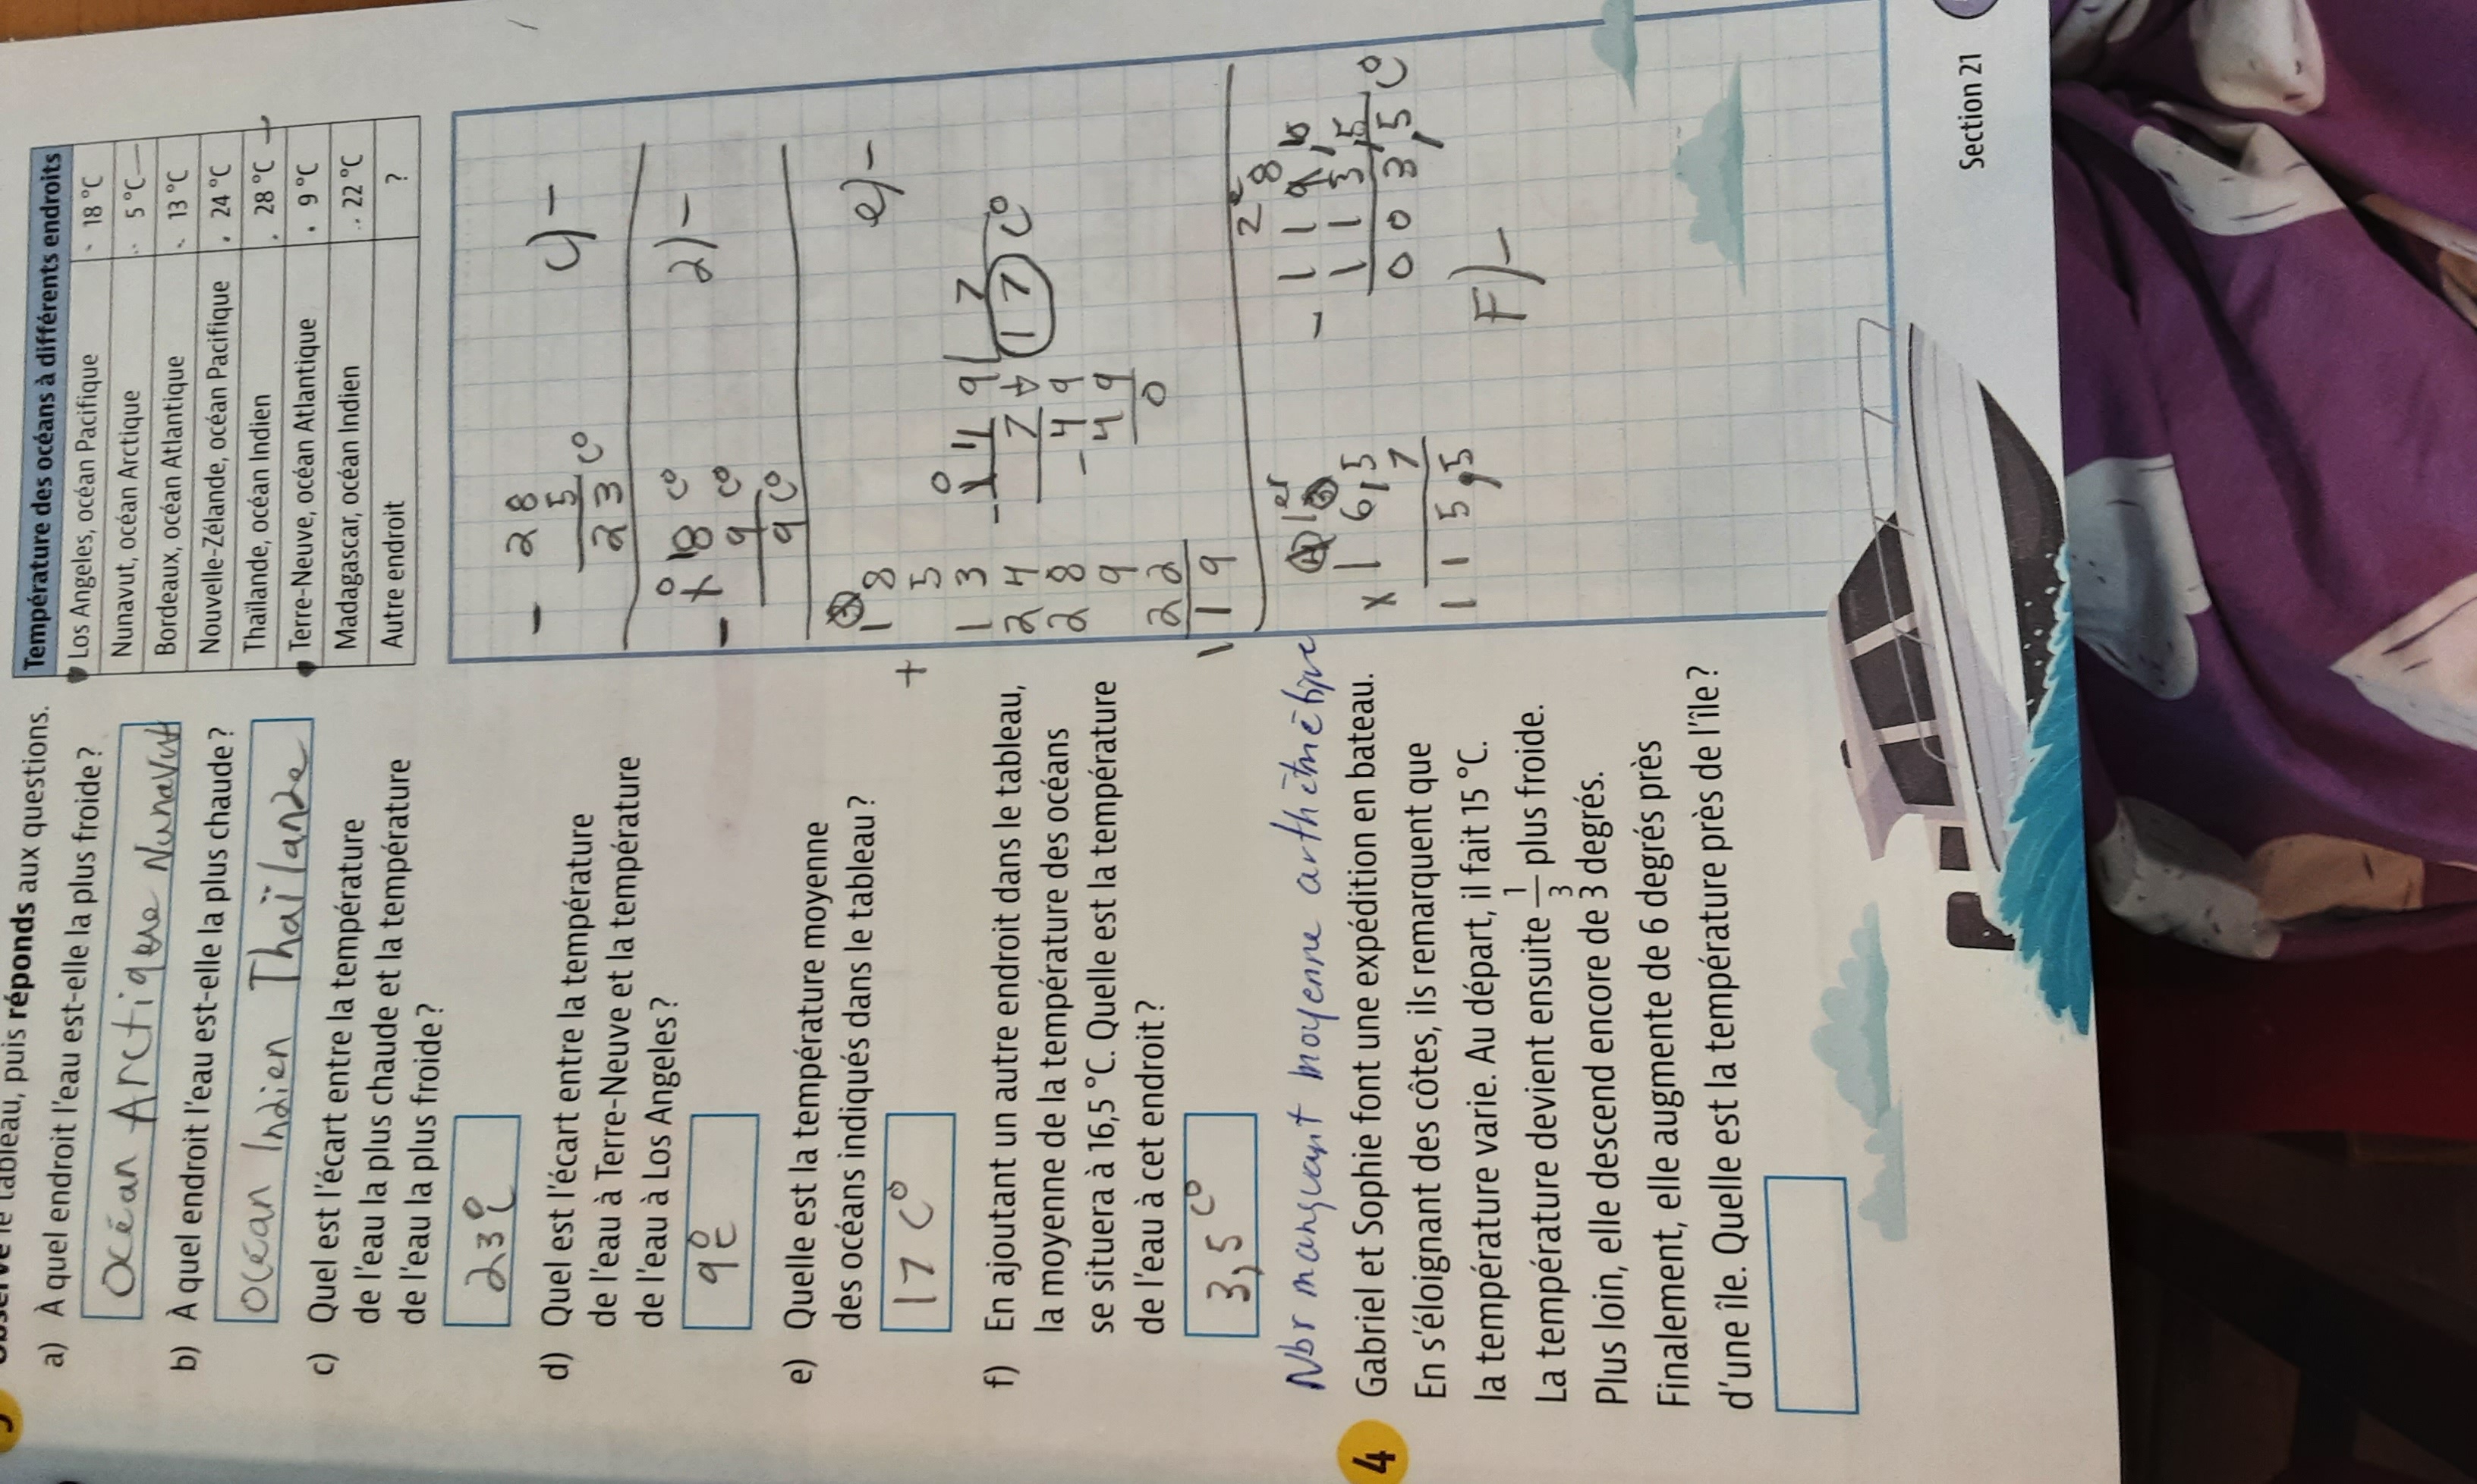 le tableau, puis réponds aux questions.
a) À quel endroit l'eau est-elle la plus froide?
océan Arctique Nunavut
b) À quel endroit l'eau est-elle la plus chaude?
océan Indien Thaïlande
c) Quel est l'écart entre la température
de l'eau la plus chaude et la température
de l'eau la plus froide?
23 °C
d) Quel est l'écart entre la température
de l'eau à Terre-Neuve et la température
de l'eau à Los Angeles?
9 °C
e) Quelle est la température moyenne
des océans indiqués dans le tableau?
17 C°
f) En ajoutant un autre endroit dans le tableau,
la moyenne de la température des océans
se situera à 16,5 °C. Quelle est la température
de l'eau à cet endroit?
3,5 C°
Nbr manquant moyenne arthémétique
4 Gabriel et Sophie font une expédition en bateau.
En s'éloignant des côtes, ils remarquent que
la température varie. Au départ, il fait 15 °C.
La température devient ensuite 1/3 plus froide.
Plus loin, elle descend encore de 3 degrés.
Finalement, elle augmente de 6 degrés près
d'une île. Quelle est la température près de l'île?
Température des océans à différents endroits
Los Angeles, océan Pacifique 18 °C
Nunavut, océan Arctique 5 °C
Bordeaux, océan Atlantique 13 °C
Nouvelle-Zélande, océan Pacifique 24 °C
Thaïlande, océan Indien 28 °C
Terre-Neuve, océan Atlantique 9 °C
Madagascar, océan Indien 22 °C
Autre endroit ?
- 28 c) -
5
23 C°
- 18 C° d) -
9 C°
9 C°
e) -
18
+ 5
13
24
28
9
22
119
- 119 7
7 17 C°
- 49
49
0
1er
x 16,5
7
115,5
2e
- 119,
115,5
003,5 C°
F) -
Section 21